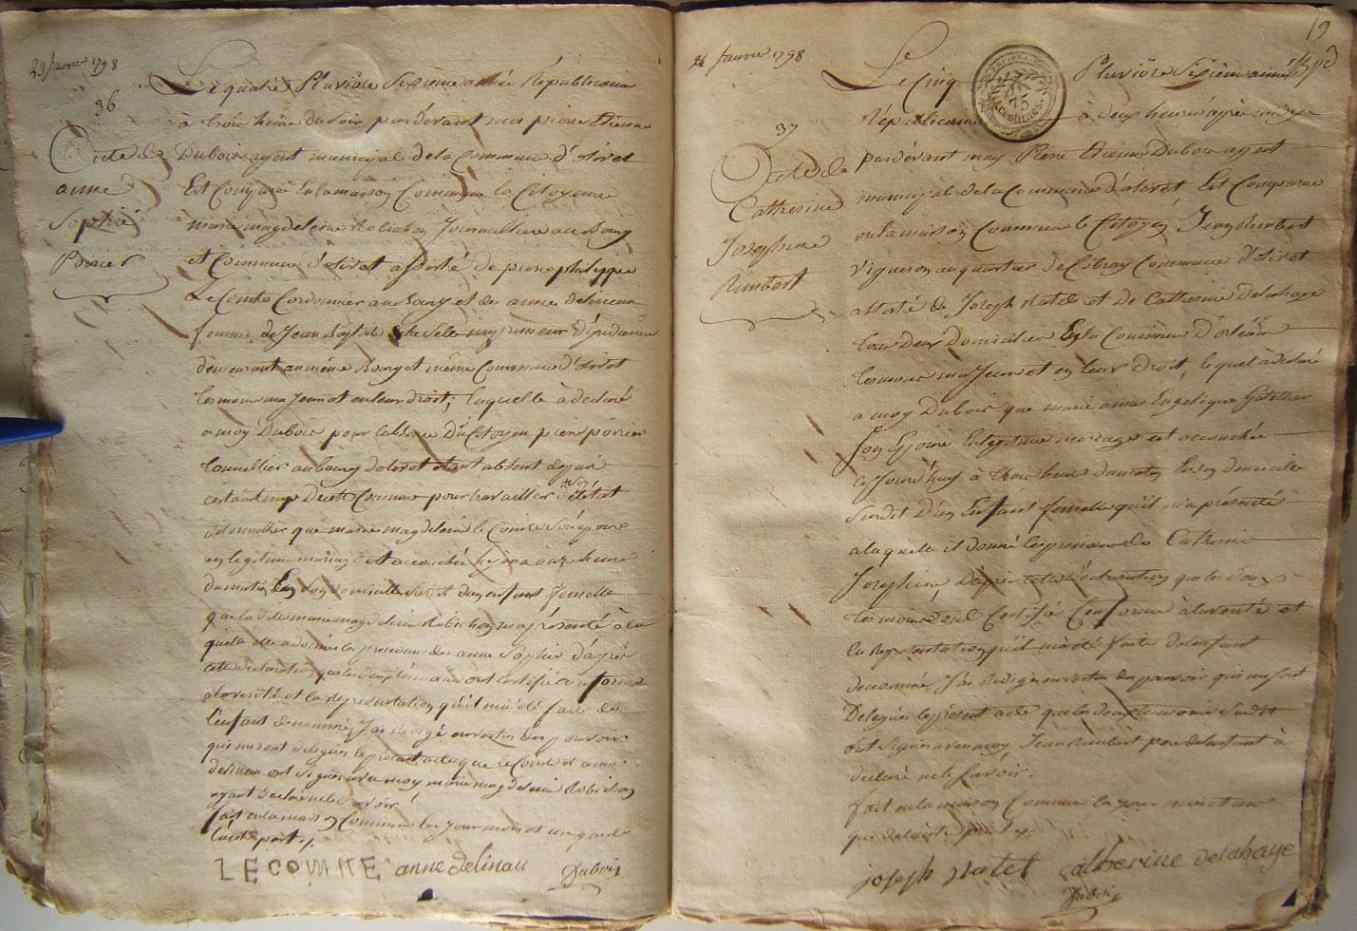 23 Janvier 1798
36
Acte de
anne
Sophie
Poirier
Le quatre Pluviôse Sixième année Républicaine
à trois heures du soir par devant moi pierre Etienne
Dubois agent municipal de la Commune d'olivet
Est Comparue En la maison Commune la Citoyenne
marie magdeleine Robichon Journaliere au bourg
et Commune d'olivet assisté de pierre philippe
Le Comte Cordonnier au bourg et de anne delineau
femme de Jean
demeurant au même bourg et même Commune d'olivet
Lesmeme majeur et en leur droit, laquelle à declaré
a moy Dubois pour l'absence du Citoyen pierre poirier
tonnellier au bourg dolivet etant absent depuis
certain temps de cette Commune pour travailler de son état
de tonnellier que marie magdeleine le Comte Son épouse
en legitime mariage est accouchée hier à onze heures
du matin En son domicile Susdit d'un enfant femelle
que la ditte marie magdeleine Robichon m'a présenté à la
quelle elle a donné les prenoms de anne Sophie d'après
cette declaration que les témoins m'ont certifié conforme
a la verité et la representation qu'il m'a été faite de
l'enfant denommé, J'ai redigé en vertu des pouvoirs
qui me sont delegués le présent acte que le Comte et anne
delineau ont Signé avec moy marie magdeleine Robichon
ayant declaré ne le savoir.
fait en la maison Commune les jour mois et an que
dautre part.
LECOMTE anne delineau Dubois
19
24 Janvier 1798
37
Acte de
Catherine
Josephine
Rimbert
Le Cinq Pluviôse Sixieme année
Républicaine à deux heures après midy
par devant moy Pierre Etienne Dubois agent
municipal de la Commune d'olivet Est Comparu
en la maison Commune le Citoyen Jean Rimbert
Vigneron au quartier de Commune d'olivet
assisté de Joseph natel et de Catherine delahaye
tous deux domicilies En la Commune d'orléans
Lesmeme majeurs et en leur droit, lequel à declaré
a moy Dubois que marie anne Engelique
Son Epouse En legitime mariage est accouchée
ce Jourd'huy à trois heures du matin En son domicile
Susdit D'un Enfant femelle qu'il m'a présenté
a laquelle il donné les prenoms de Catherine
Josephine, d'après cette déclaration que les d.
témoins ont Certifié Conforme à la verité et
la representation qu'il m'a été faite de l'enfant
denommé, J'ai Redigé en vertu des pouvoirs qui me sont
Delegués le present acte que les deux temoins Susdit
ont Signé avec moy, Jean Rimbert pere de l'enfant à
declaré ne le Savoir.
fait en la maison Commune les jour mois et an
que de l'autre part.
joseph natel catherine delahaye
Dubois